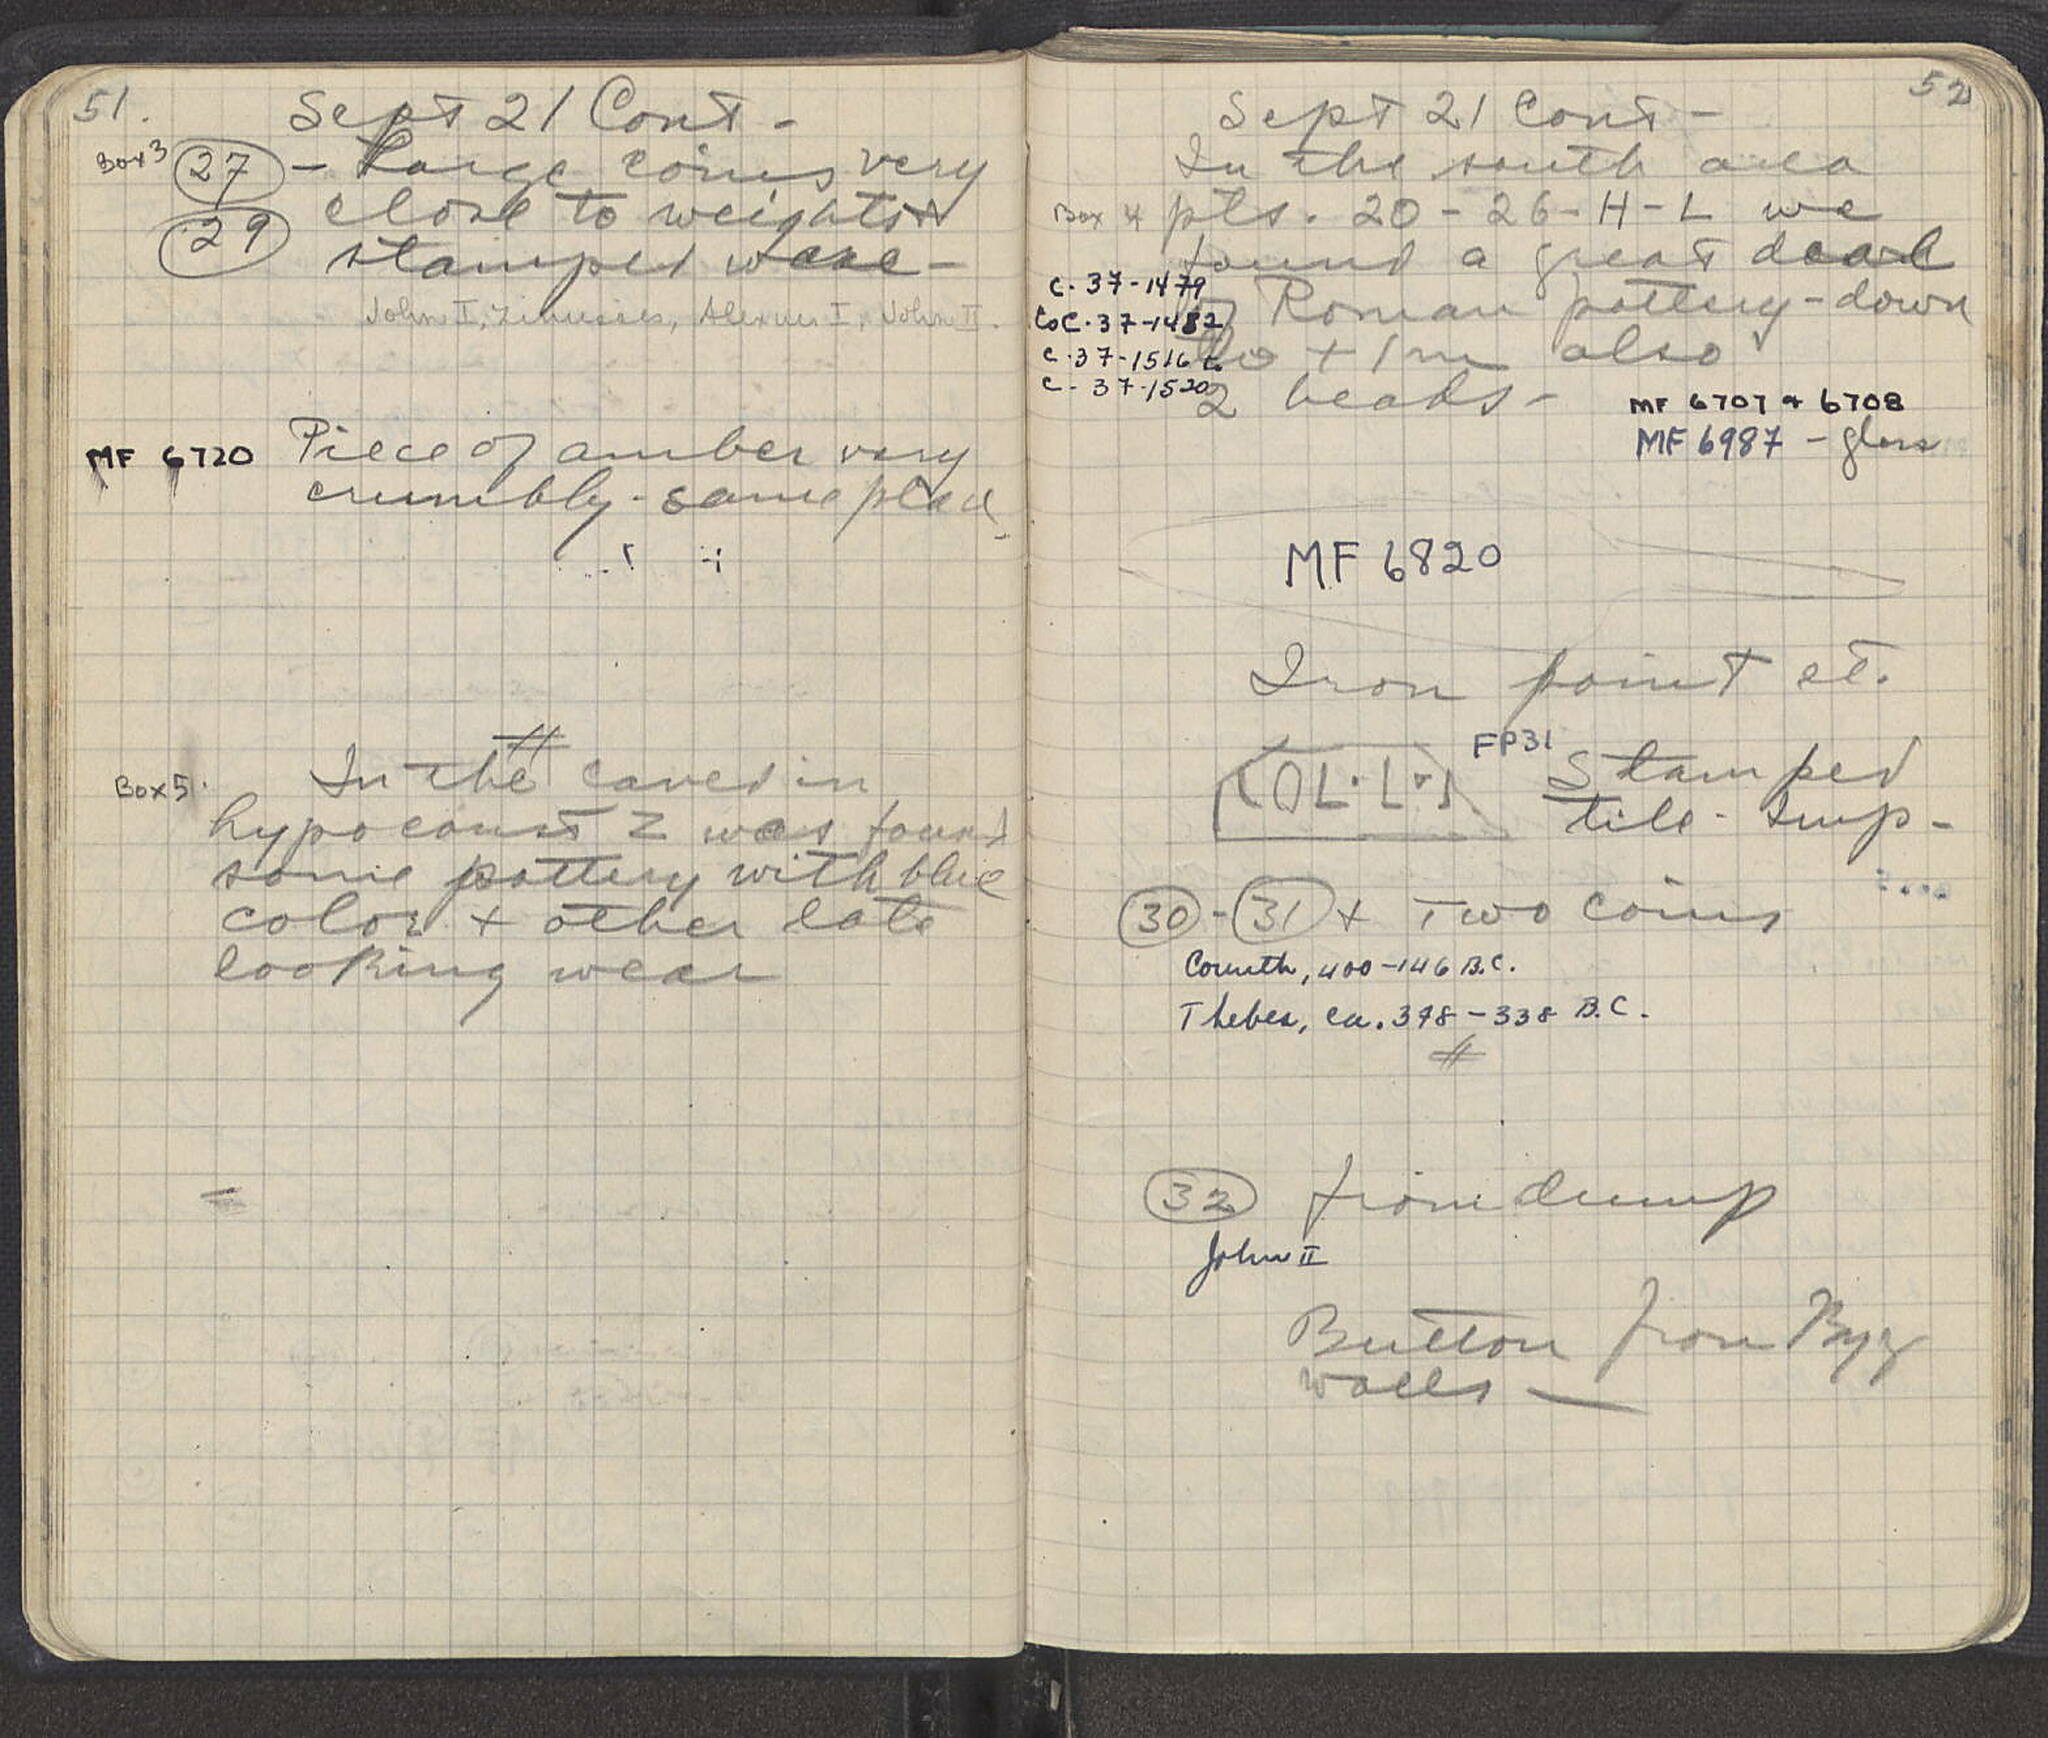 51.
Sept 21 Cont -
Box 3 (27) - Large coins very
(29) close to weights +
stamped ware -
John I, Zimisces, Alexius I, John II.
MF 6720 Piece of amber very
crumbly - same place
#
Box 5. In the caved in
hypocaust 2 was found
some pottery with blue
color + other late
looking wear
52
Sept 21 Cont -
In the south area
Box 4 pts. 20 - 26 - H - L we
found a great deal
C. 37-1479
of Roman pottery - down
C. 37-1482
to + 1m also
C. 37-1516
C - 37-1520
2 beads -
MF 6707 + 6708
MF 6987 - glass
MF 6820
Iron point et.
FP31
COL·L·I Stamped
tile - Imp -
(30) - (31) + Two coins
Corinth, 400-146 B.C.
Thebes, ca. 378-338 B.C.
#
(32) from dump
John II
Button from Byz
walls —